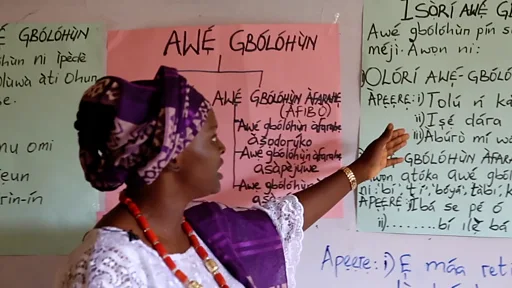 GBÓLÓHÙN
ni ìpèdè
olùwà àti Ohun
mu omi
jẹun
rin-ín
AWẸ́ GBÓLÓHÙN
AWẸ́ GBÓLÓHÙN ÀFARAHẸ
(AFIBỌ)
Awẹ́ gbólóhùn àfarahẹ
aṣodorúkọ
Awẹ́ gbólóhùn àfarahẹ
aṣàpèjúwe
Awẹ́ gbólóhùn àfarahẹ
ÌSỌ̀RÍ AWẸ́
Awẹ́ gbólóhùn pín sí
méjì. Àwọn ni:
OLÓRÍ AWẸ́-GBÓLÓ
ÀPẸẸRẸ: i) Tolú ń ká
ii) Iṣẹ́ dára
iii) Àbúrò mi
GBÓLÓHÙN ÀFARAHẸ
atọ́ka awẹ́ gból
ni: bí, tí, bóyá, tàbí, k
ÀPẸẸRẸ Ìbá ṣe pé ó
ii)........bí ilẹ̀ bá
Apẹẹrẹ: i) Ẹ máa reti